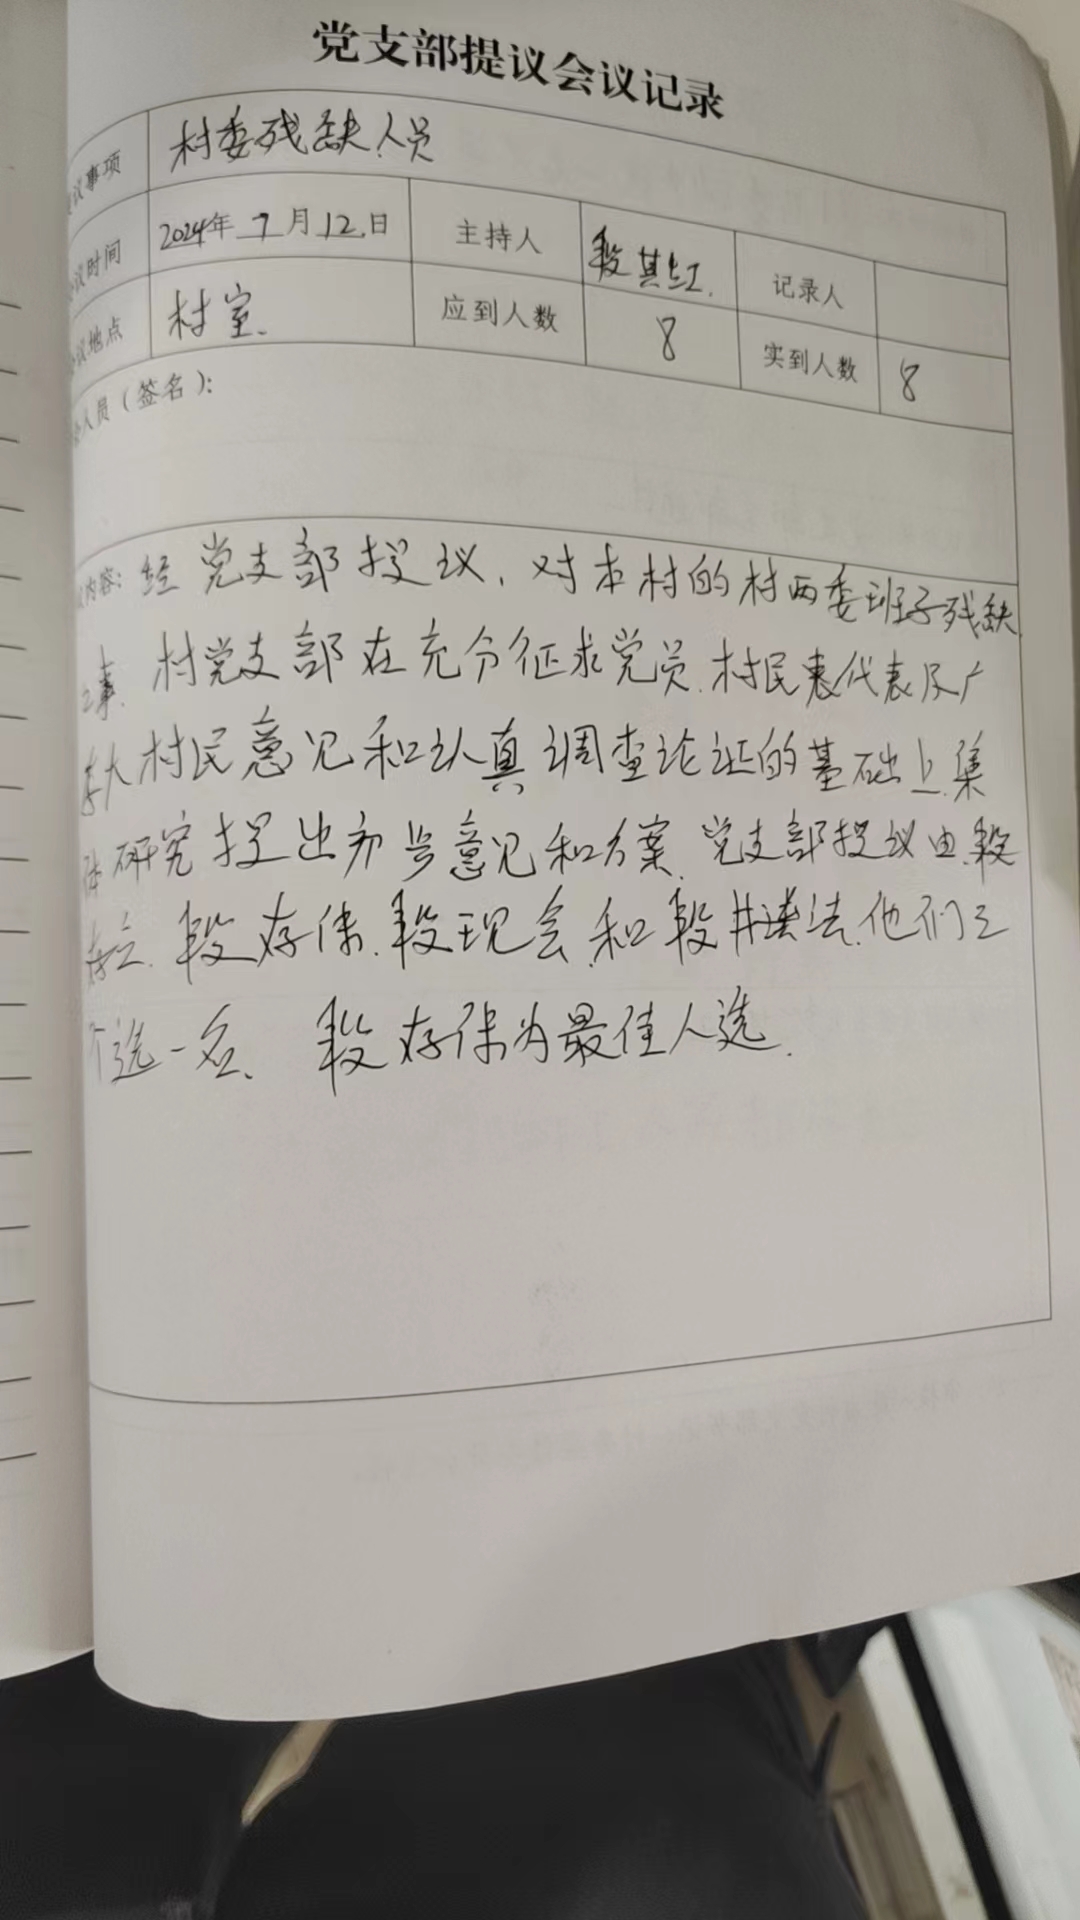 党支部提议会议记录
议事项 村委残缺人员
议时间 2024年7月12日 主持人 段其红 记录人
议地点 村室 应到人数 8 实到人数 8
人员（签名）：
内容：经党支部提议，对本村的村两委班子残缺
事，村党支部在充分征求党员、村民代表及广
大村民意见和认真调查论证的基础上，集
体研究提出初步意见和方案，党支部提议由段
段存保、段现会和段井 法，他们三
个选一名，段存保为最佳人选。